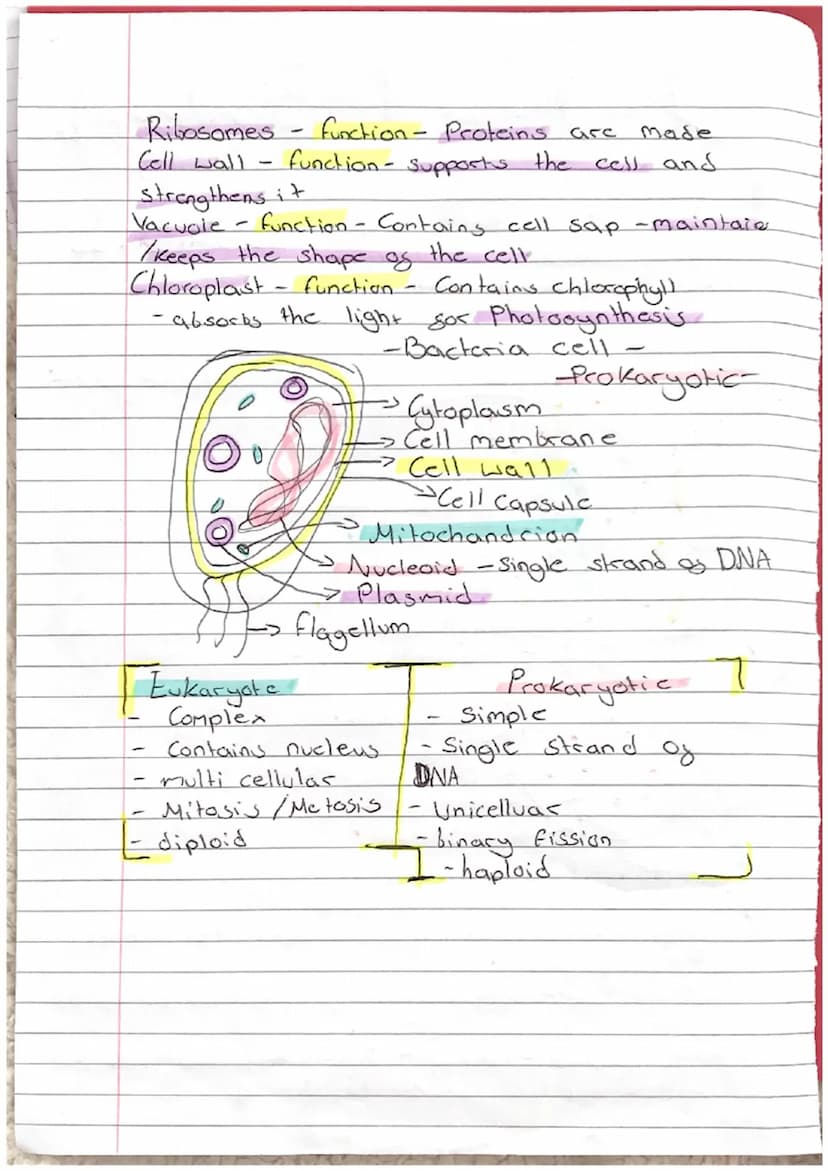 Ribosomes - function - Proteins are made
Cell wall - function - supports the cell and
strengthens it
Vacuole - function - Contains cell sap - maintain
/keeps the shape of the cell
Chloroplast - function - Contains chlorophyll
- absorbs the light for Photosynthesis
- Bacteria cell -
- Prokaryotic -
Cytoplasm
Cell membrane
Cell wall
Cell Capsule
Mitochondrion
Nucleoid - Single strand of DNA
Plasmid
flagellum
Eukaryote
- Complex
- Contains nucleus
- multi cellular
- Mitosis / Meiosis
- diploid
Prokaryotic
- Simple
- Single strand of
DNA
- Unicelluar
- binary fission
- haploid